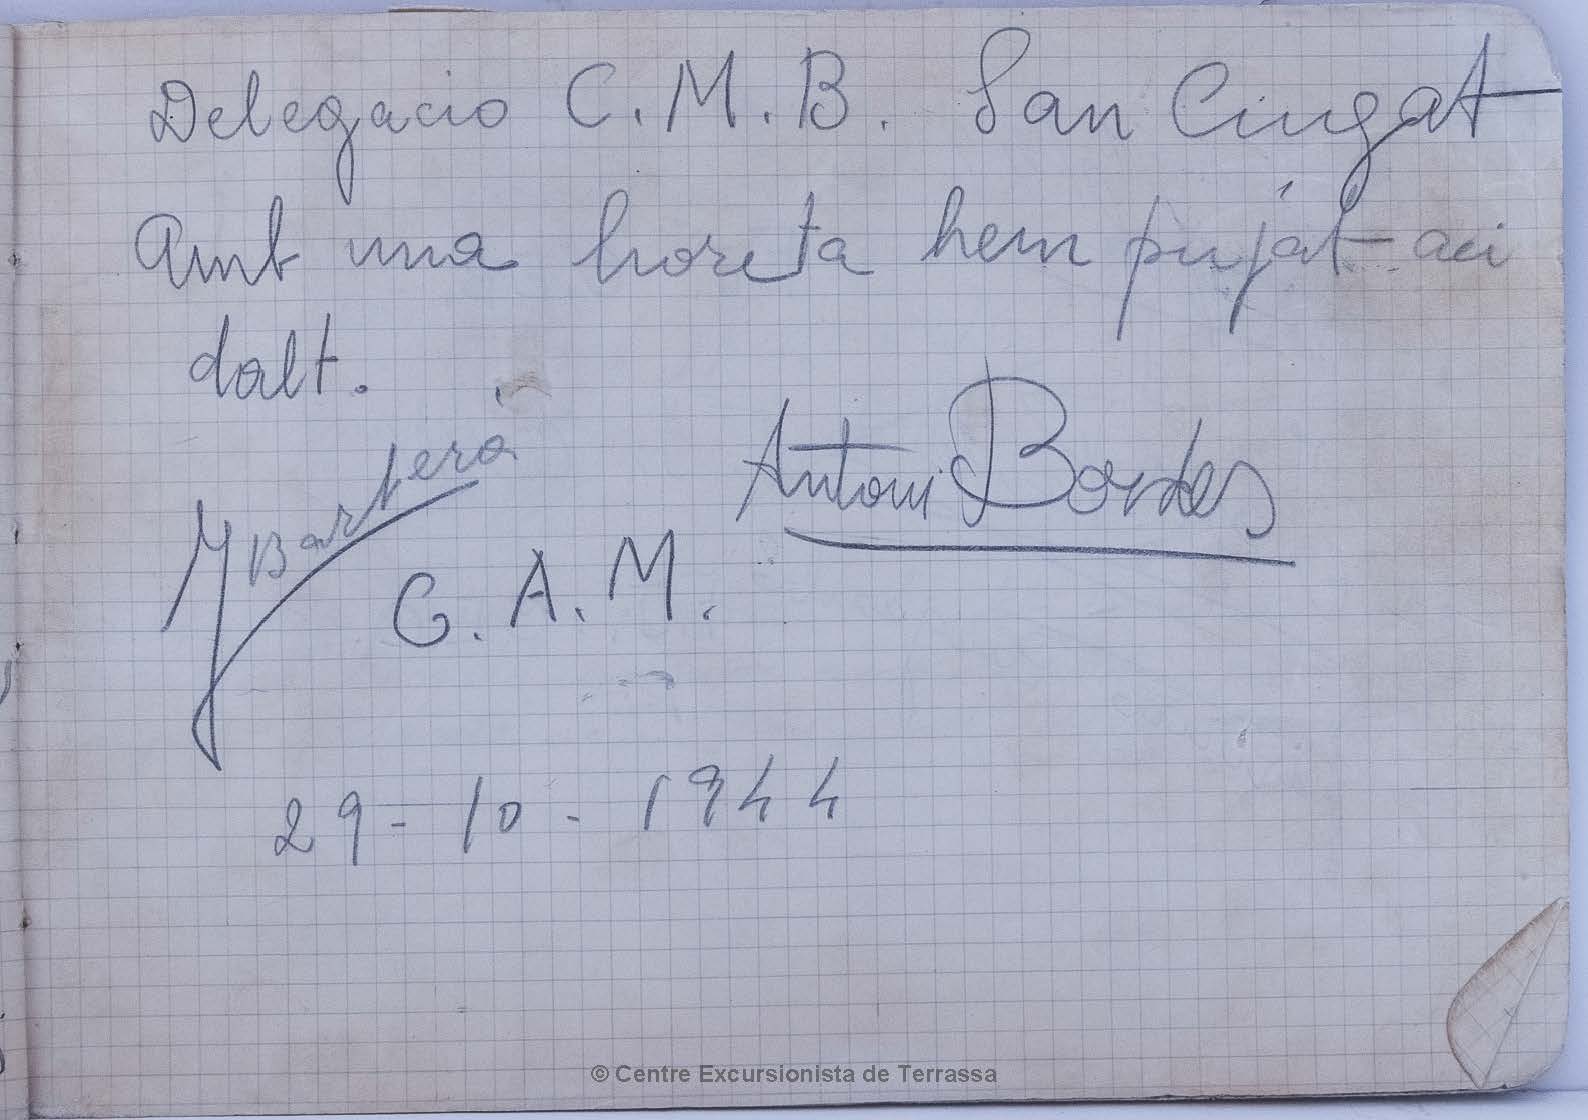 Delegacio C.M.B. San Ciugat
Amb una horeta hem pujat aci
dalt.
Antoni Bordes
G.A.M.
29-10-1944
© Centre Excursionista de Terrassa